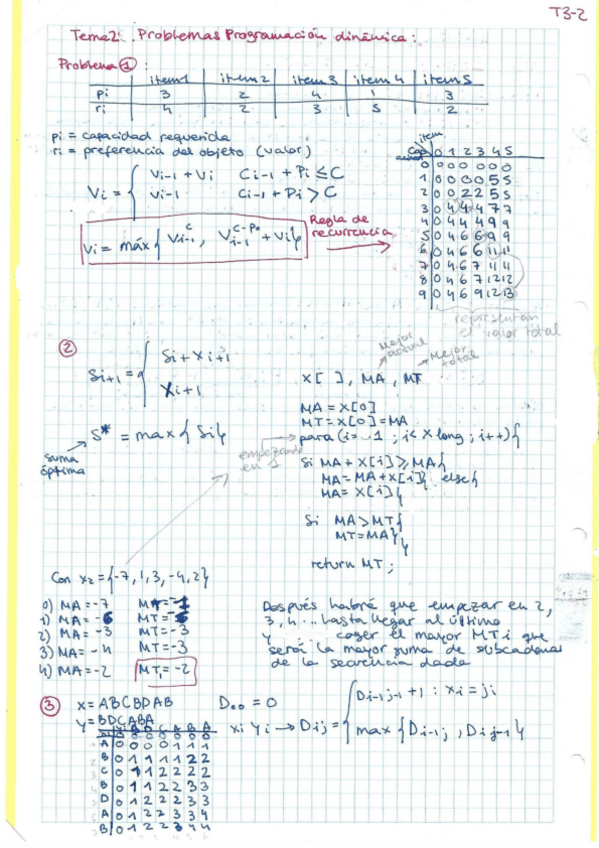 T3-2
Tema 2: Problemas Programación dinámica:
Problema ①:
item1 item2 item3 item4 item5
pi 3 2 4 1 3
ri 4 2 3 5 2
pi = capacidad requerida
ri = preferencia del objeto (valor)
Vi = { Vi-1 + Vi Ci-1 + Pi ≤ C
Vi-1 Ci-1 + Pi > C
Vi = máx { V i-1 ^C , V i-1 ^C-Po + Vi }
Regla de recurrencia
item
Cap 0 1 2 3 4 5
0 0 0 0 0 0 0
1 0 0 0 0 5 5
2 0 0 2 2 5 5
3 0 4 4 4 7 7
4 0 4 4 4 9 9
5 0 4 6 6 9 9
6 0 4 6 6 11 11
7 0 4 6 7 11 11
8 0 4 6 7 12 12
9 0 4 6 9 12 13
representan
el valor total
②
Si+1 = { Si + Xi+1
Xi+1
S* = max { Si }
suma
óptima
empezando
en 1
Mejor
actual
Mejor
total
X[ ], MA, MT
MA = X[0]
MT = X[0] = MA
para (i = 1 ; i < X long ; i++) {
Si MA + X[i] ≥ MA {
MA = MA + X[i] } else {
MA = X[i] }
Si MA > MT {
MT = MA } }
return MT;
Con x2 = {-7, 1, 3, -4, 2}
0) MA = -7
1) MA = -6 MT = -6
2) MA = -3 MT = -3
3) MA = -4 MT = -3
4) MA = -2 MT1 = -2
Después habrá que empezar en 2,
3, 4... hasta llegar al último
y coger el mayor MTi que
será la mayor suma de subcadenas
de la secuencia dada
③ x = ABCBDAB D00 = 0
y = BDCABA
xi yi → Dij = { Di-1j-1 + 1 : xi = ji
max { Di-1j , Dij-1 }
B D C A B A
0 0 0 0 0 0 0
A 0 0 0 0 1 1 1
B 0 1 1 1 1 2 2
C 0 1 1 2 2 2 2
B 0 1 1 2 2 3 3
D 0 1 2 2 2 3 3
A 0 1 2 2 3 3 4
B 0 1 2 2 3 4 4